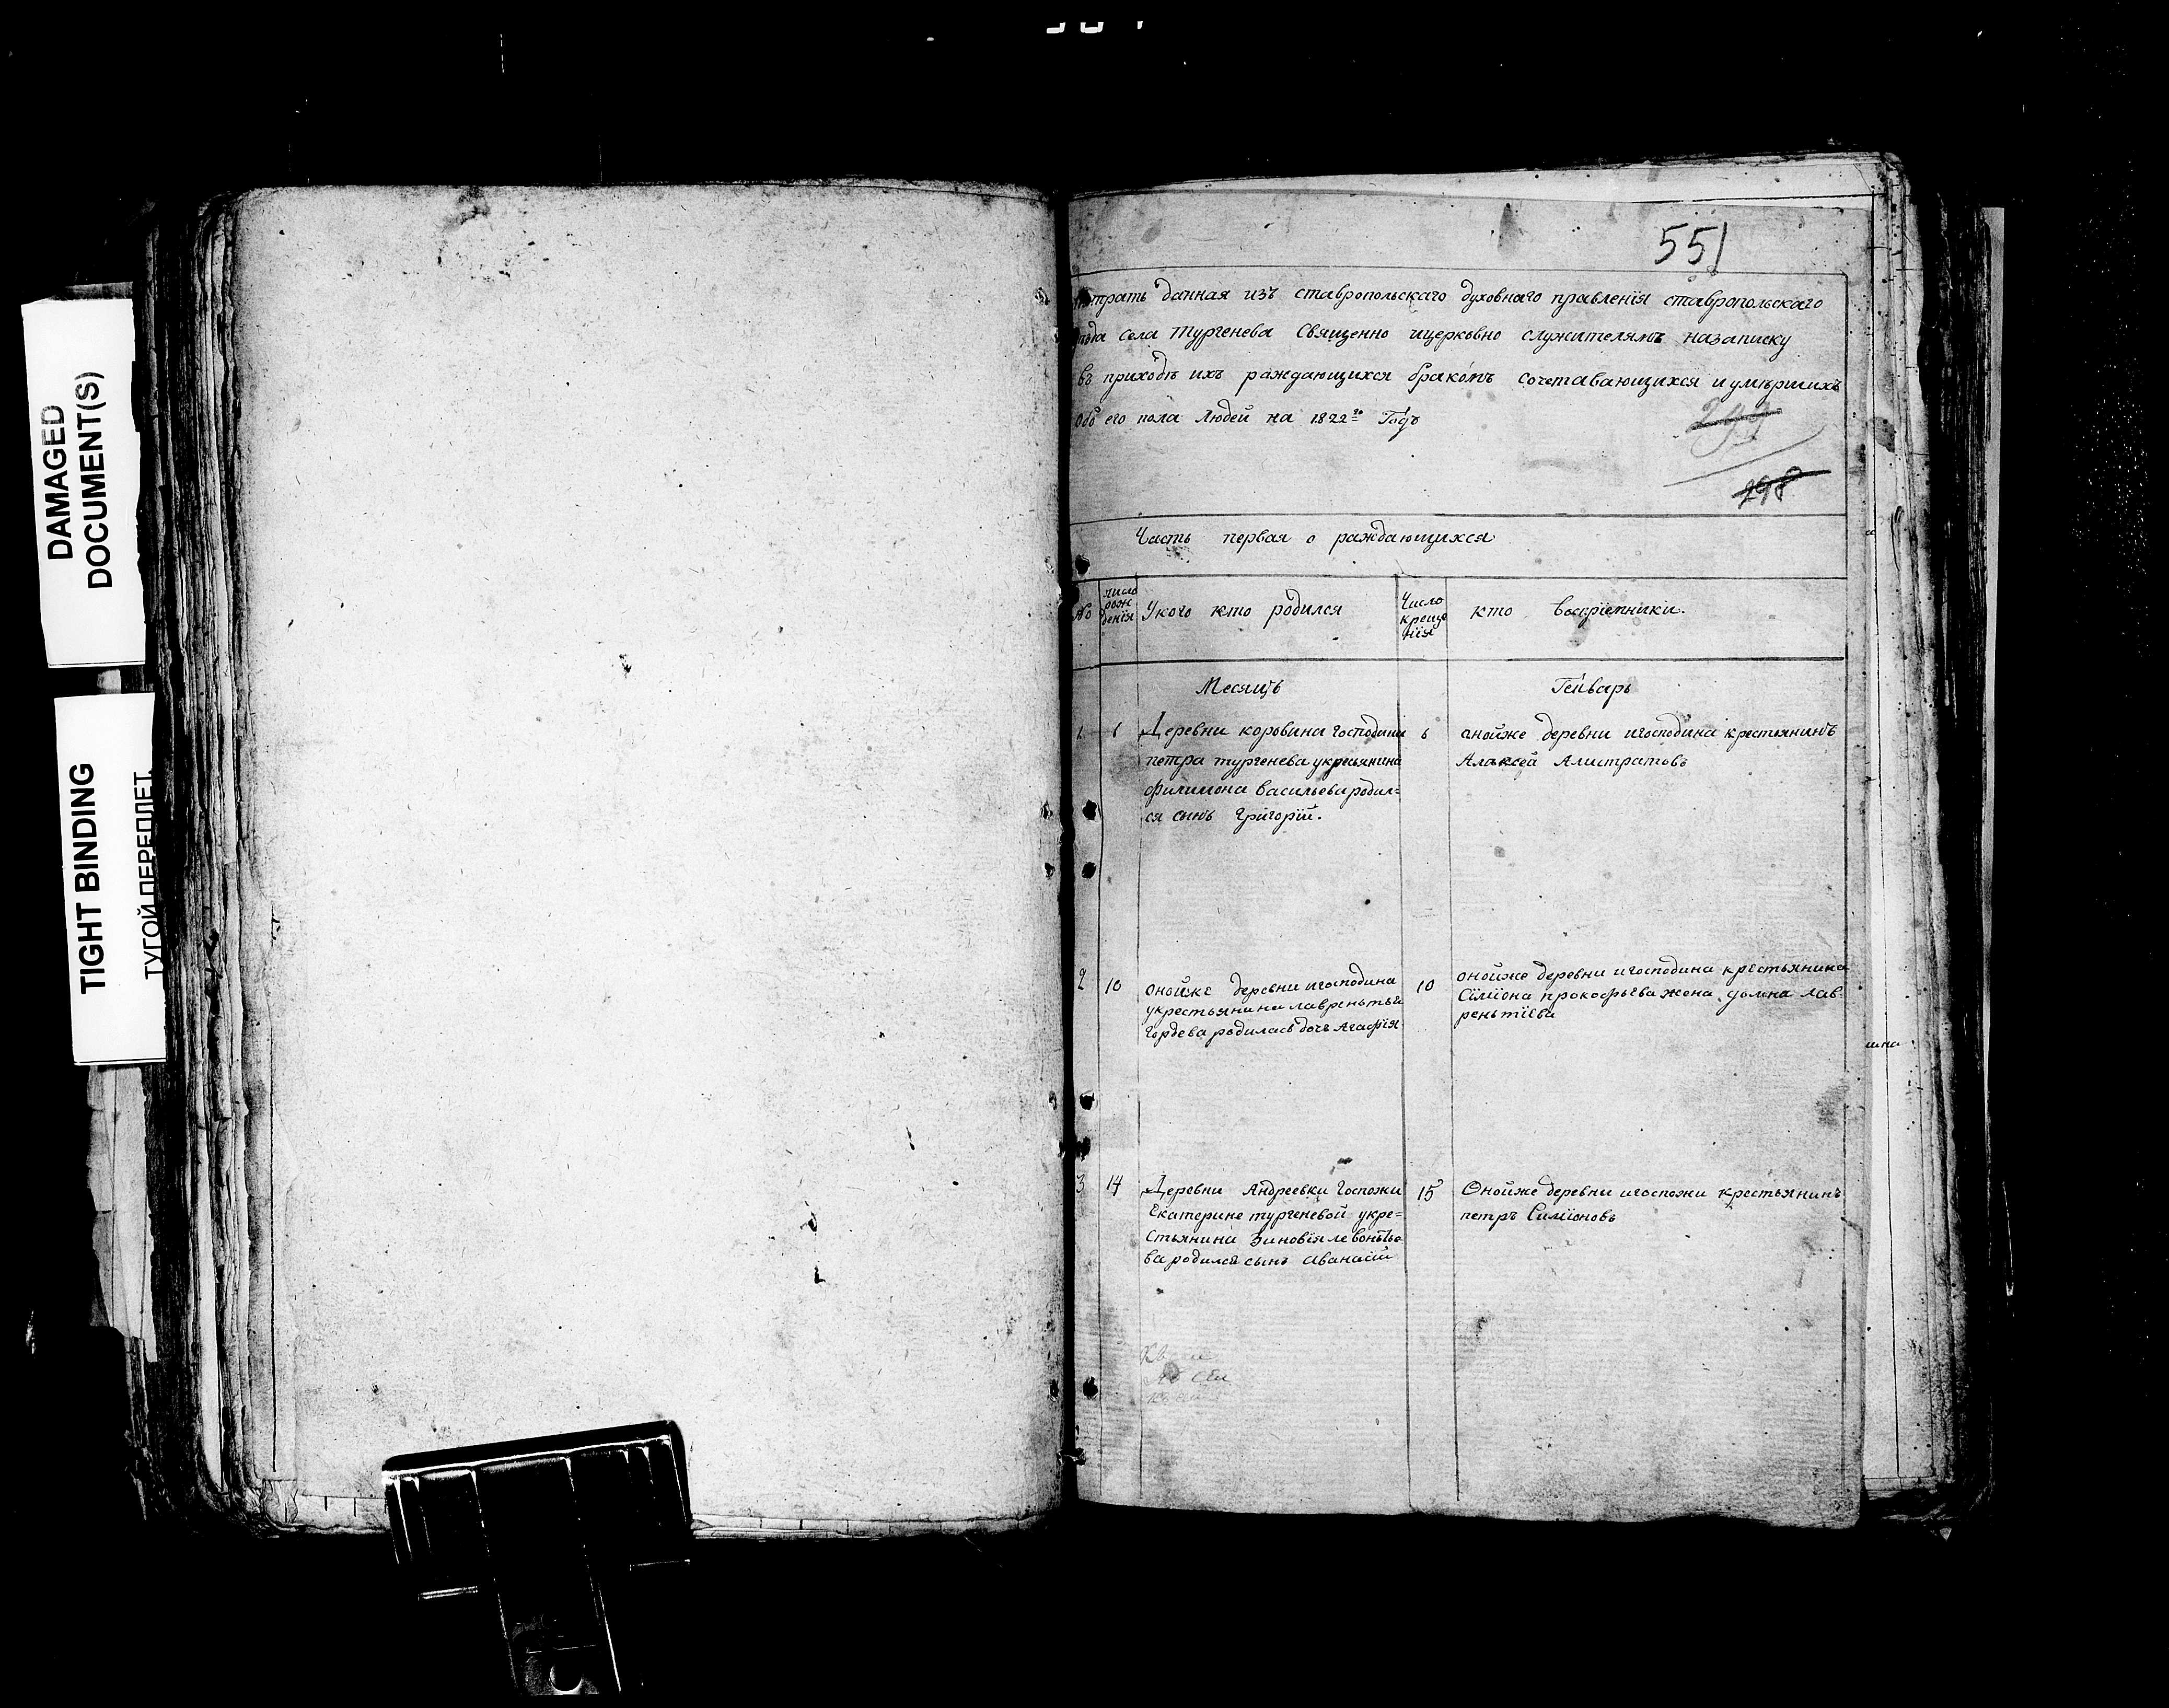 DAMAGED
DOCUMENT(S)
TIGHT BINDING
ТУГОЙ ПЕРЕПЛЕТ
551
данная изъ ставропольскаго духовнаго правленїя ставропольскаго
села Тургенева Священно ицерковно служителямъ назаписку
въ приходѣ ихъ раждающихся бракомъ сочетавающихся и умѣршихъ
обоего пола людей на 1822го Годъ
299
298
Часть первая о раждающихся
№
число рождения
Укого кто родился
Число крещенїя
кто восрїемники.
Месяцъ
Генварь
1
6
Деревни коровина господина
петра тургенева укресьянина
филимона васильева родил=
ся сынъ григорїй.
6
онойже деревни игосподина крестьянинъ
Алексей Алистратовъ
2
10
онойже деревни игосподина
укрестьянина лаврентьи
гордева родилась дочь Агафїя
10
онойже деревни игосподина крестьянина
Сїмїона прокофьева жена домна лав-
рентїева
3
14
Деревни Андреевки Госпожи
Екатерине тургеневой укре=
стьянина Зиновїя левонтье
ва родился сынъ Аванасїй
15
Онойже деревни игоспожи крестьянинъ
петръ Симїоновъ